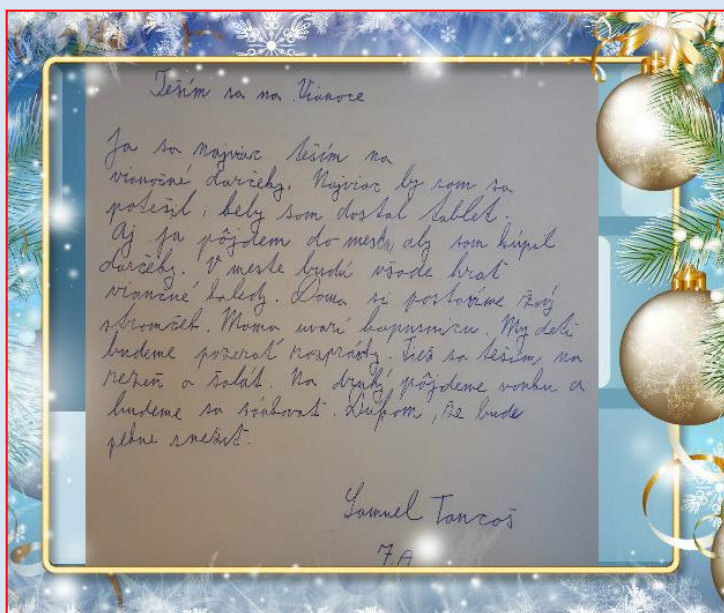 Teším sa na Vianoce
Ja sa najviac teším na
vianočné darčeky. Najviac by som sa
potešil, keby som dostal tablet.
Aj ja pôjdem do mesta, aby som kúpil
darčeky. V meste budú všade hrať
vianočné koledy. Doma si postavíme živý
stromček. Mama uvarí kapusnicu. My deti
budeme pozerať rozprávky. Tiež sa teším na
rezeň a šalát. Na druhý pôjdeme vonku a
budeme sa sánkovať. Dúfam, že bude
pekne snežiť.
Samuel Tancoš
7.A